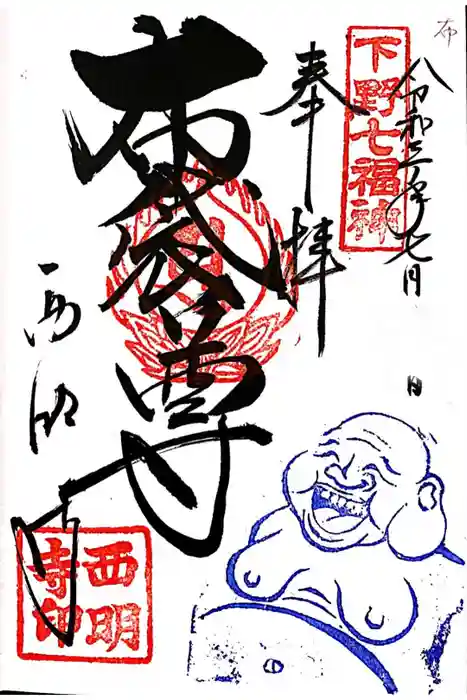 布
八
令和三年七月
日
下野七福神
奉拝
布袋尊
西明寺
西明
寺印